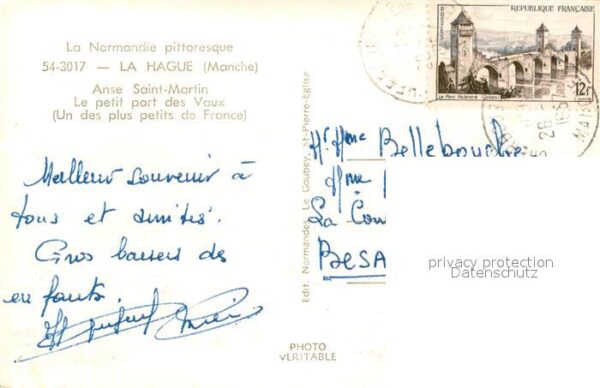 La Normandie pittoresque
54-3017 — LA HAGUE (Manche)
Anse Saint-Martin
Le petit port des Vaux
(Un des plus petits de France)
Meilleur souvenir à
tous et amitiés.
Gros baisers des
enfants.
Edit. Normandes Le Goubey, St-Pierre-Eglise
PHOTO
VERITABLE
POSTES
REPUBLIQUE FRANÇAISE
Le Pont Valentré (Cahors)
12F
Mr Mme
Mme
La Con
BESA
privacy protection
Datenschutz